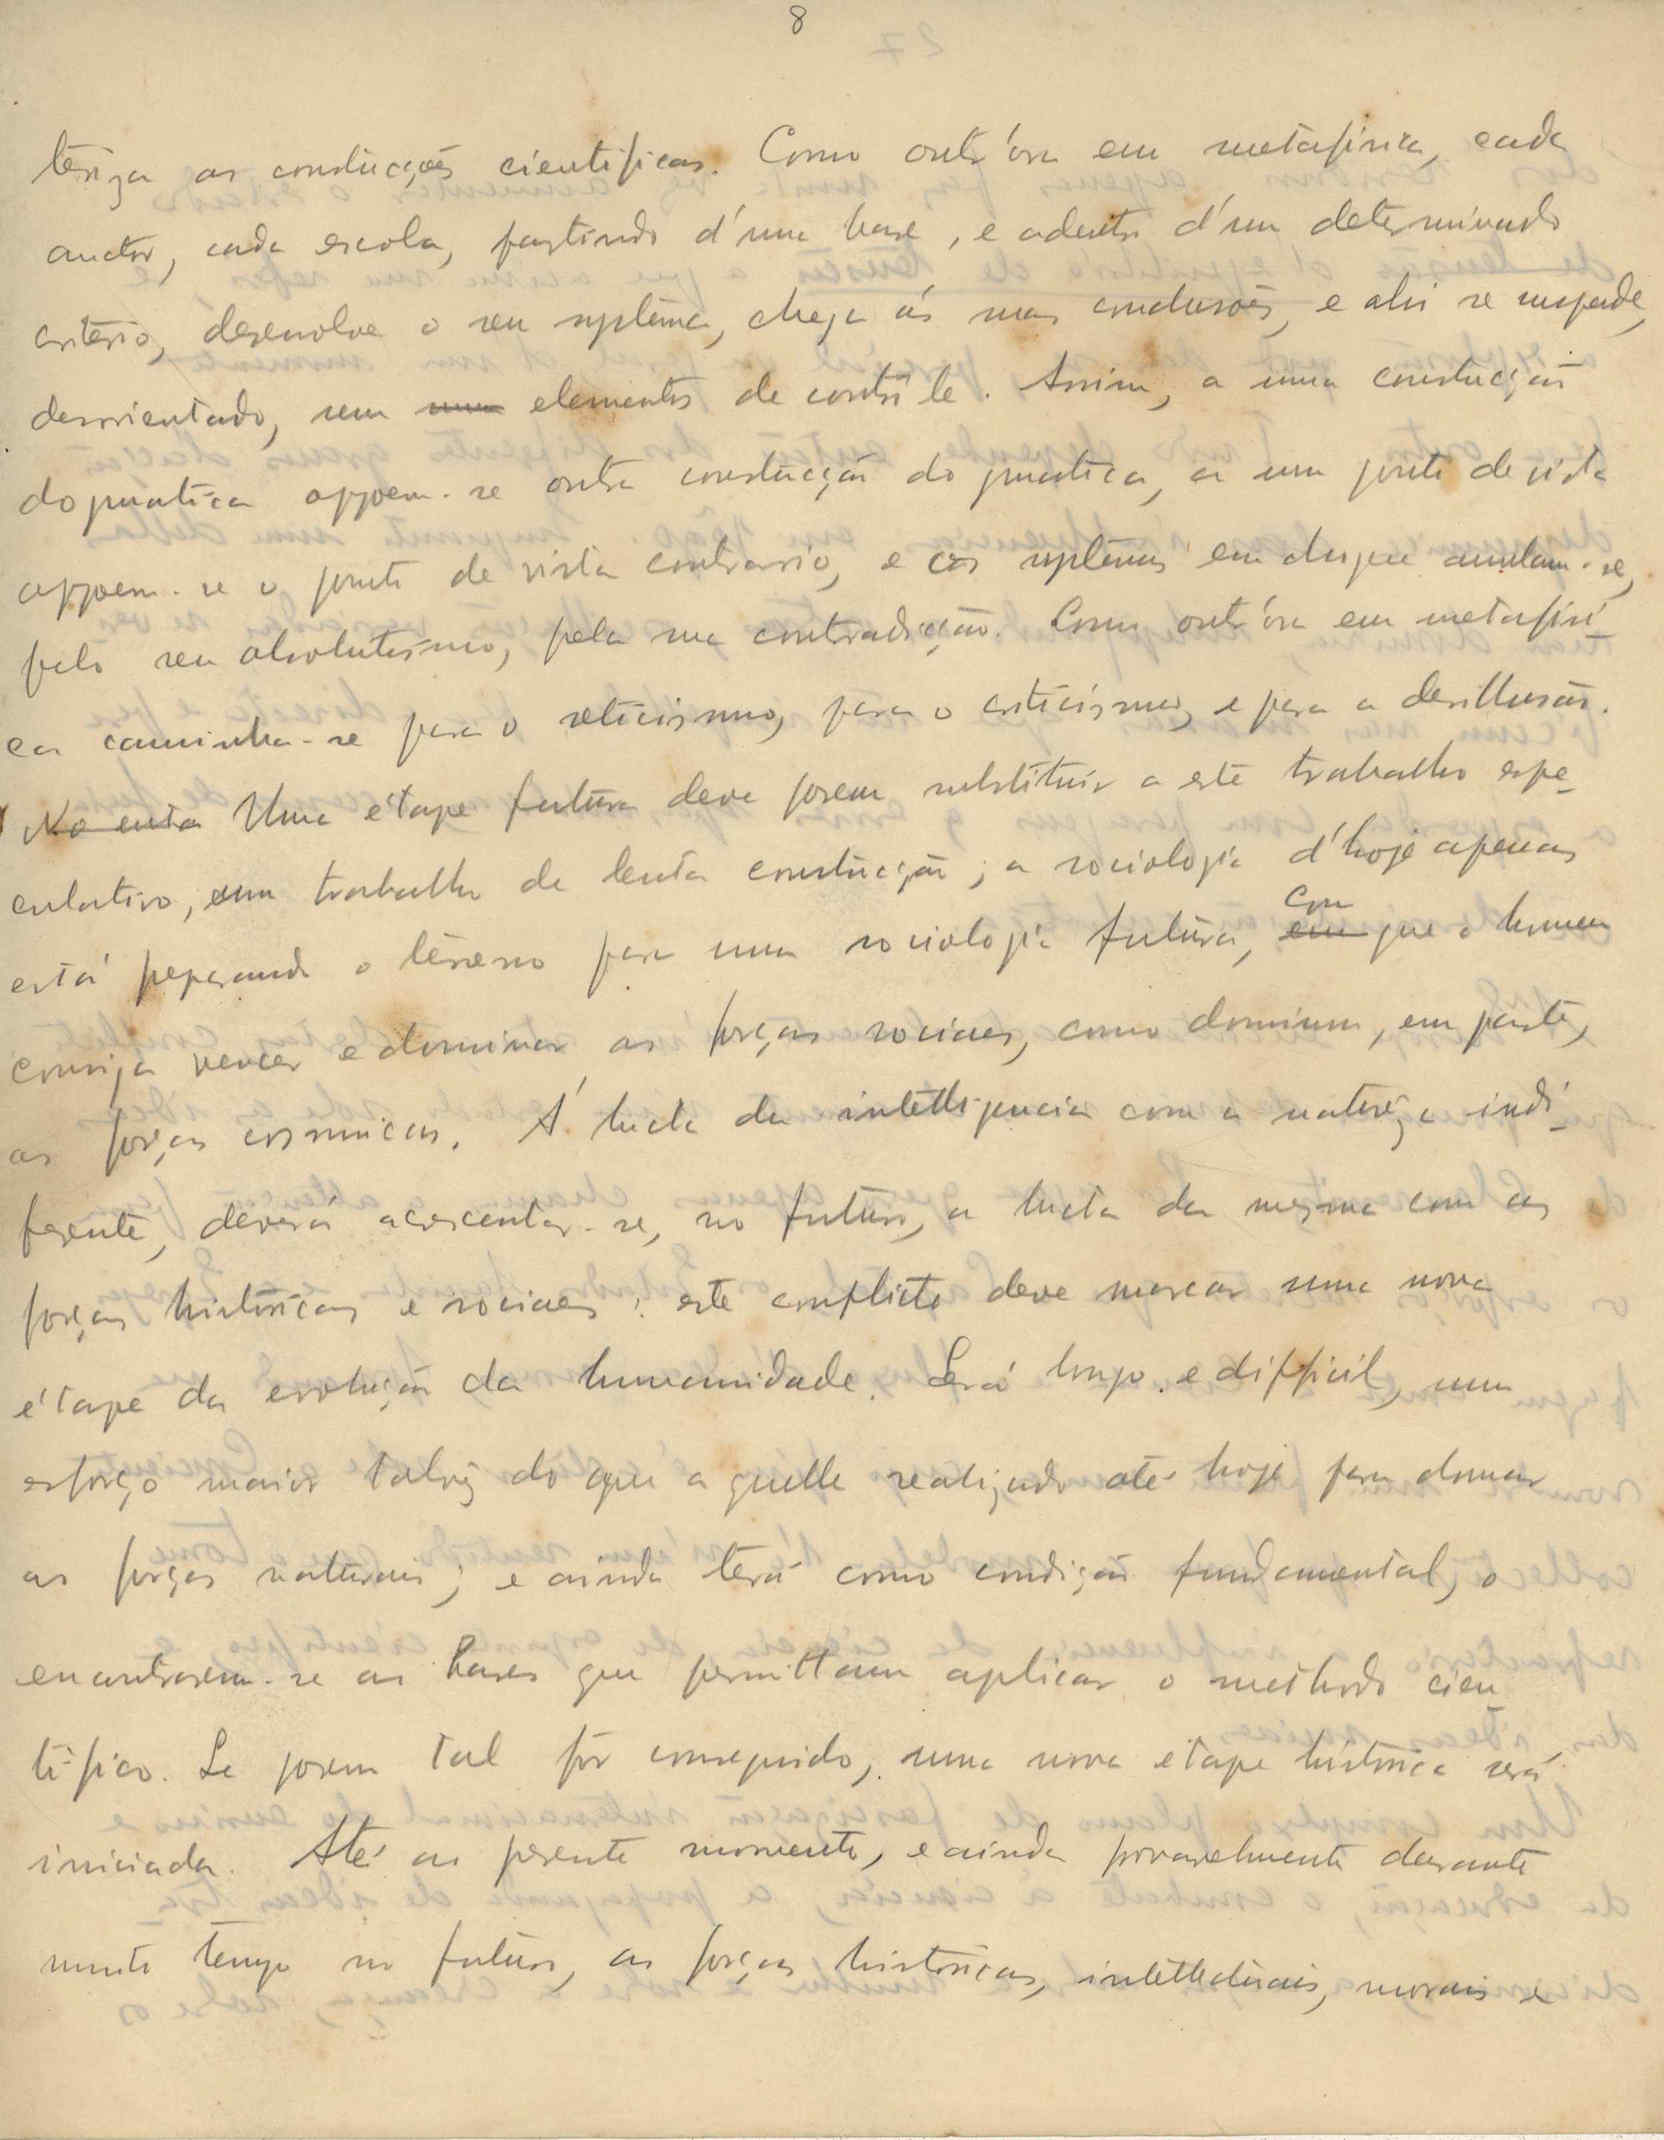 8
teriza as construcções cientificas. Como outr'ora em metafisica, cada
auctor, cada escola, partindo d'uma base, e adentro d'um determinado
critério, desenvolve o seu systema, chega ás suas conclusões, e ahi se suspende,
desorientado, sem elementos de contrôle. Assim, a uma construcção
dogmatica oppoem-se outra construcção dogmatica, a um ponto de vista
oppoem-se o ponto de vista contrario, e os systemas em choque annulam-se,
pelo seu absolutismo, pela sua contradicção. Como outr'ora em metafisi-
ca caminha-se para o scéticismo, para o criticismo, e para a desillusão.
No enta Uma étape futura deve porem substituir a este trabalho espe-
culativo, um trabalho de lenta construcção; a sociologia d'hoje apenas
está preparando o terreno para uma sociologia futura, em com que o homem
consiga vencer e dominar as forças sociaes, como dominou, em parte,
as forças cosmicas. Á lucta da intelligencia com a natureza indi-
ferente, deverá acrescentar-se, no futuro, a lucta da mesma com as
forças historicas e sociaes: este conflicto deve marcar uma nova
étape da evolução da humanidade. Será longo e difficil, um
esforço maior talvez do que aquelle realizado até hoje para domar
as forças naturais; e ainda terá como condição fundamental, o
encontrarem-se as bases que permittam aplicar o methodo cien-
tifico. Se porem tal fôr conseguido, uma nova étape historica será
iniciada. Até ao presente momento, e ainda provavelmente durante
muito tempo no futuro, as forças historicas, intellectuais, morais e